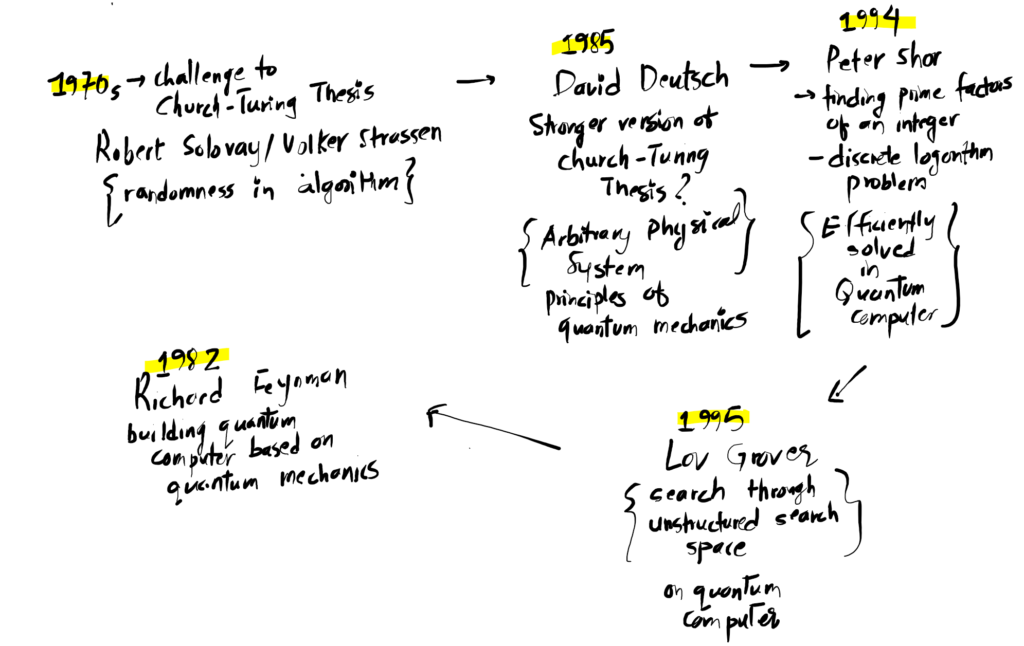 1970s → challenge to
Church-Turing Thesis
Robert Solovay/Volker Strassen
{randomness in algorithm}
1985
David Deutsch
Stronger version of
Church-Turing
Thesis?
{Arbitrary Physical
System}
principles of
quantum mechanics
1994
Peter Shor
→ finding prime factors
of an integer
- discrete logorithm
problem
{Efficiently
solved
in
Quantum
computer}
1995
Lov Grover
{search through
unstructured search
space}
on quantum
computer
1982
Richard Feynman
building quantum
computer based on
quantum mechanics